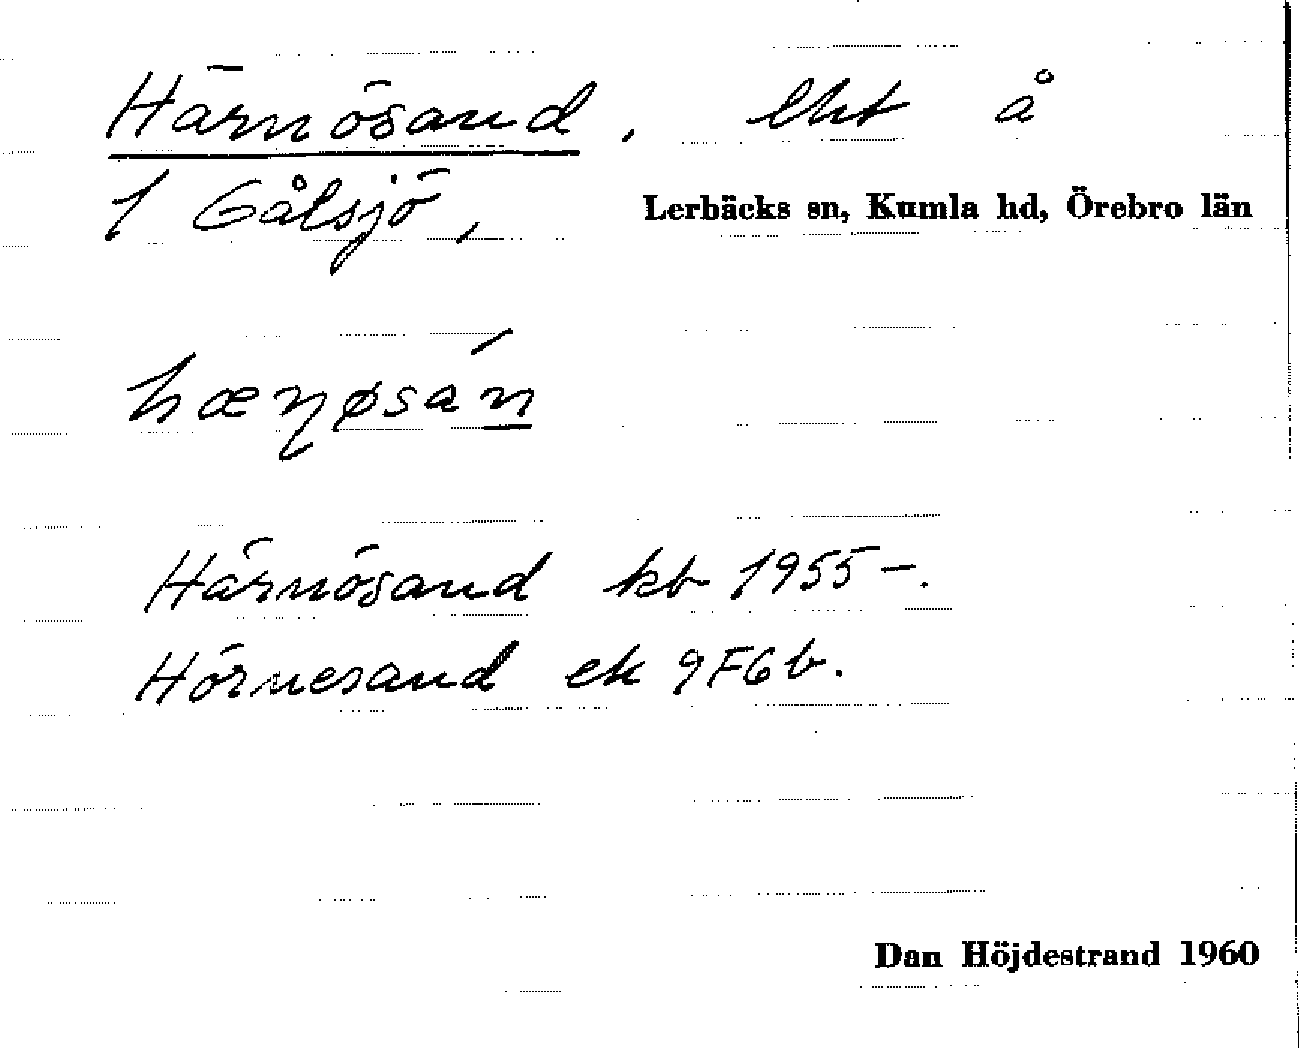 Härnösand, lht å
1 Gålsjö, Lerbäcks sn, Kumla hd, Örebro län
hæɳøsán
Härnösand kb 1955-.
Hörnesand ek 9F6b.
Dan Höjdestrand 1960